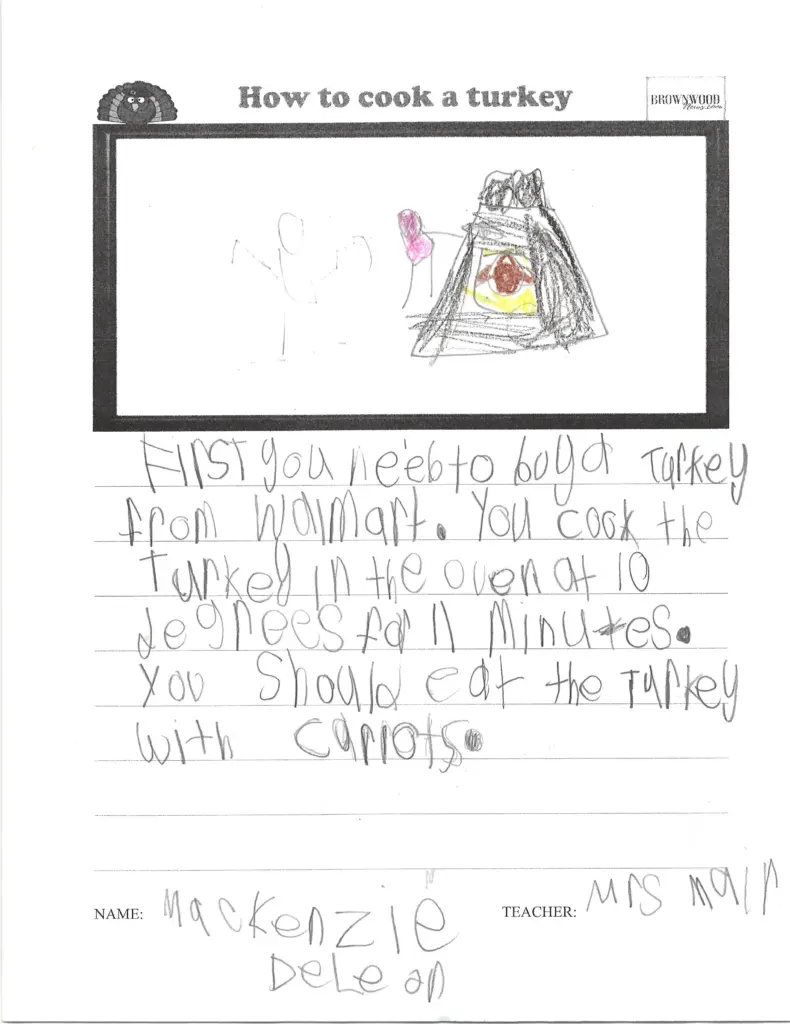 How to cook a turkey
BROWNWOOD
News.com
First you need to buy a Turkey
from Walmart. You cook the
Turkey in the oven at 10
degrees for 11 Minutes.
You Should eat the Turkey
with carrots.
NAME: Mackenzie
DeLeon
TEACHER: Mrs Mair